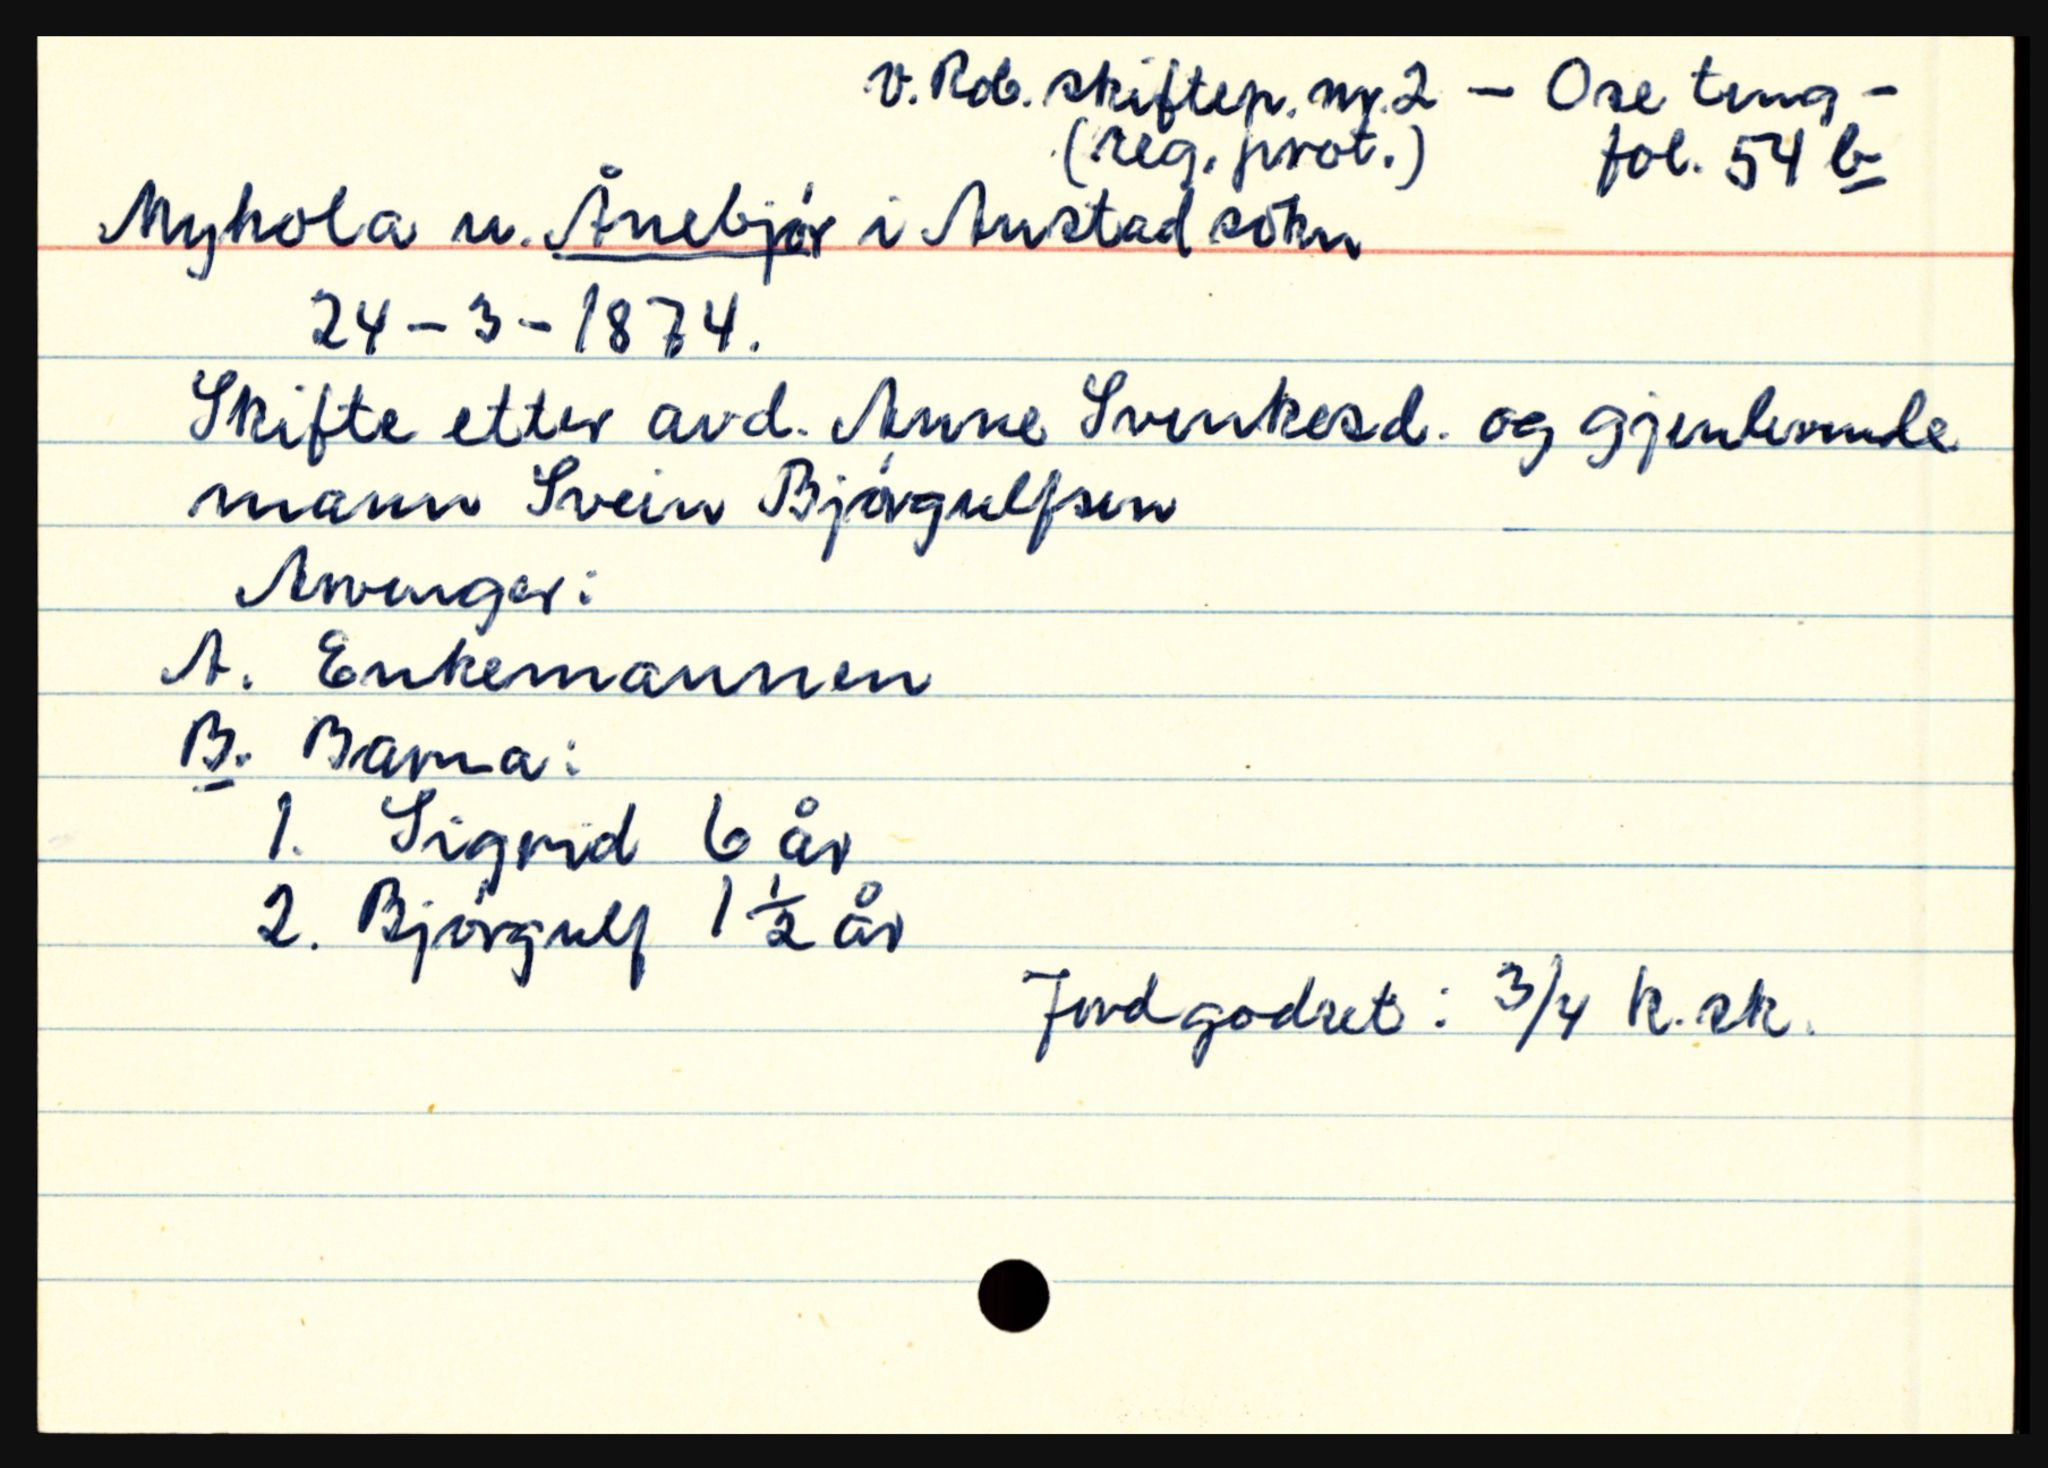 v. Rob. skiftep. nr. 2 – Ose ting –
(reg. prot.) fol. 54 b
Myhola u. Ånebjør i Austad sokn
24 – 3 – 1874.
Skifte etter avd. Anne Svenkesd. og gjenlevende
mann Svein Bjørgulfsen
Arvinger:
A. Enkemannen
B. Barna:
1. Sigrid 6 år
2. Bjørgulf 1 ½ år
Jordgodset: 3/4 k. sk.